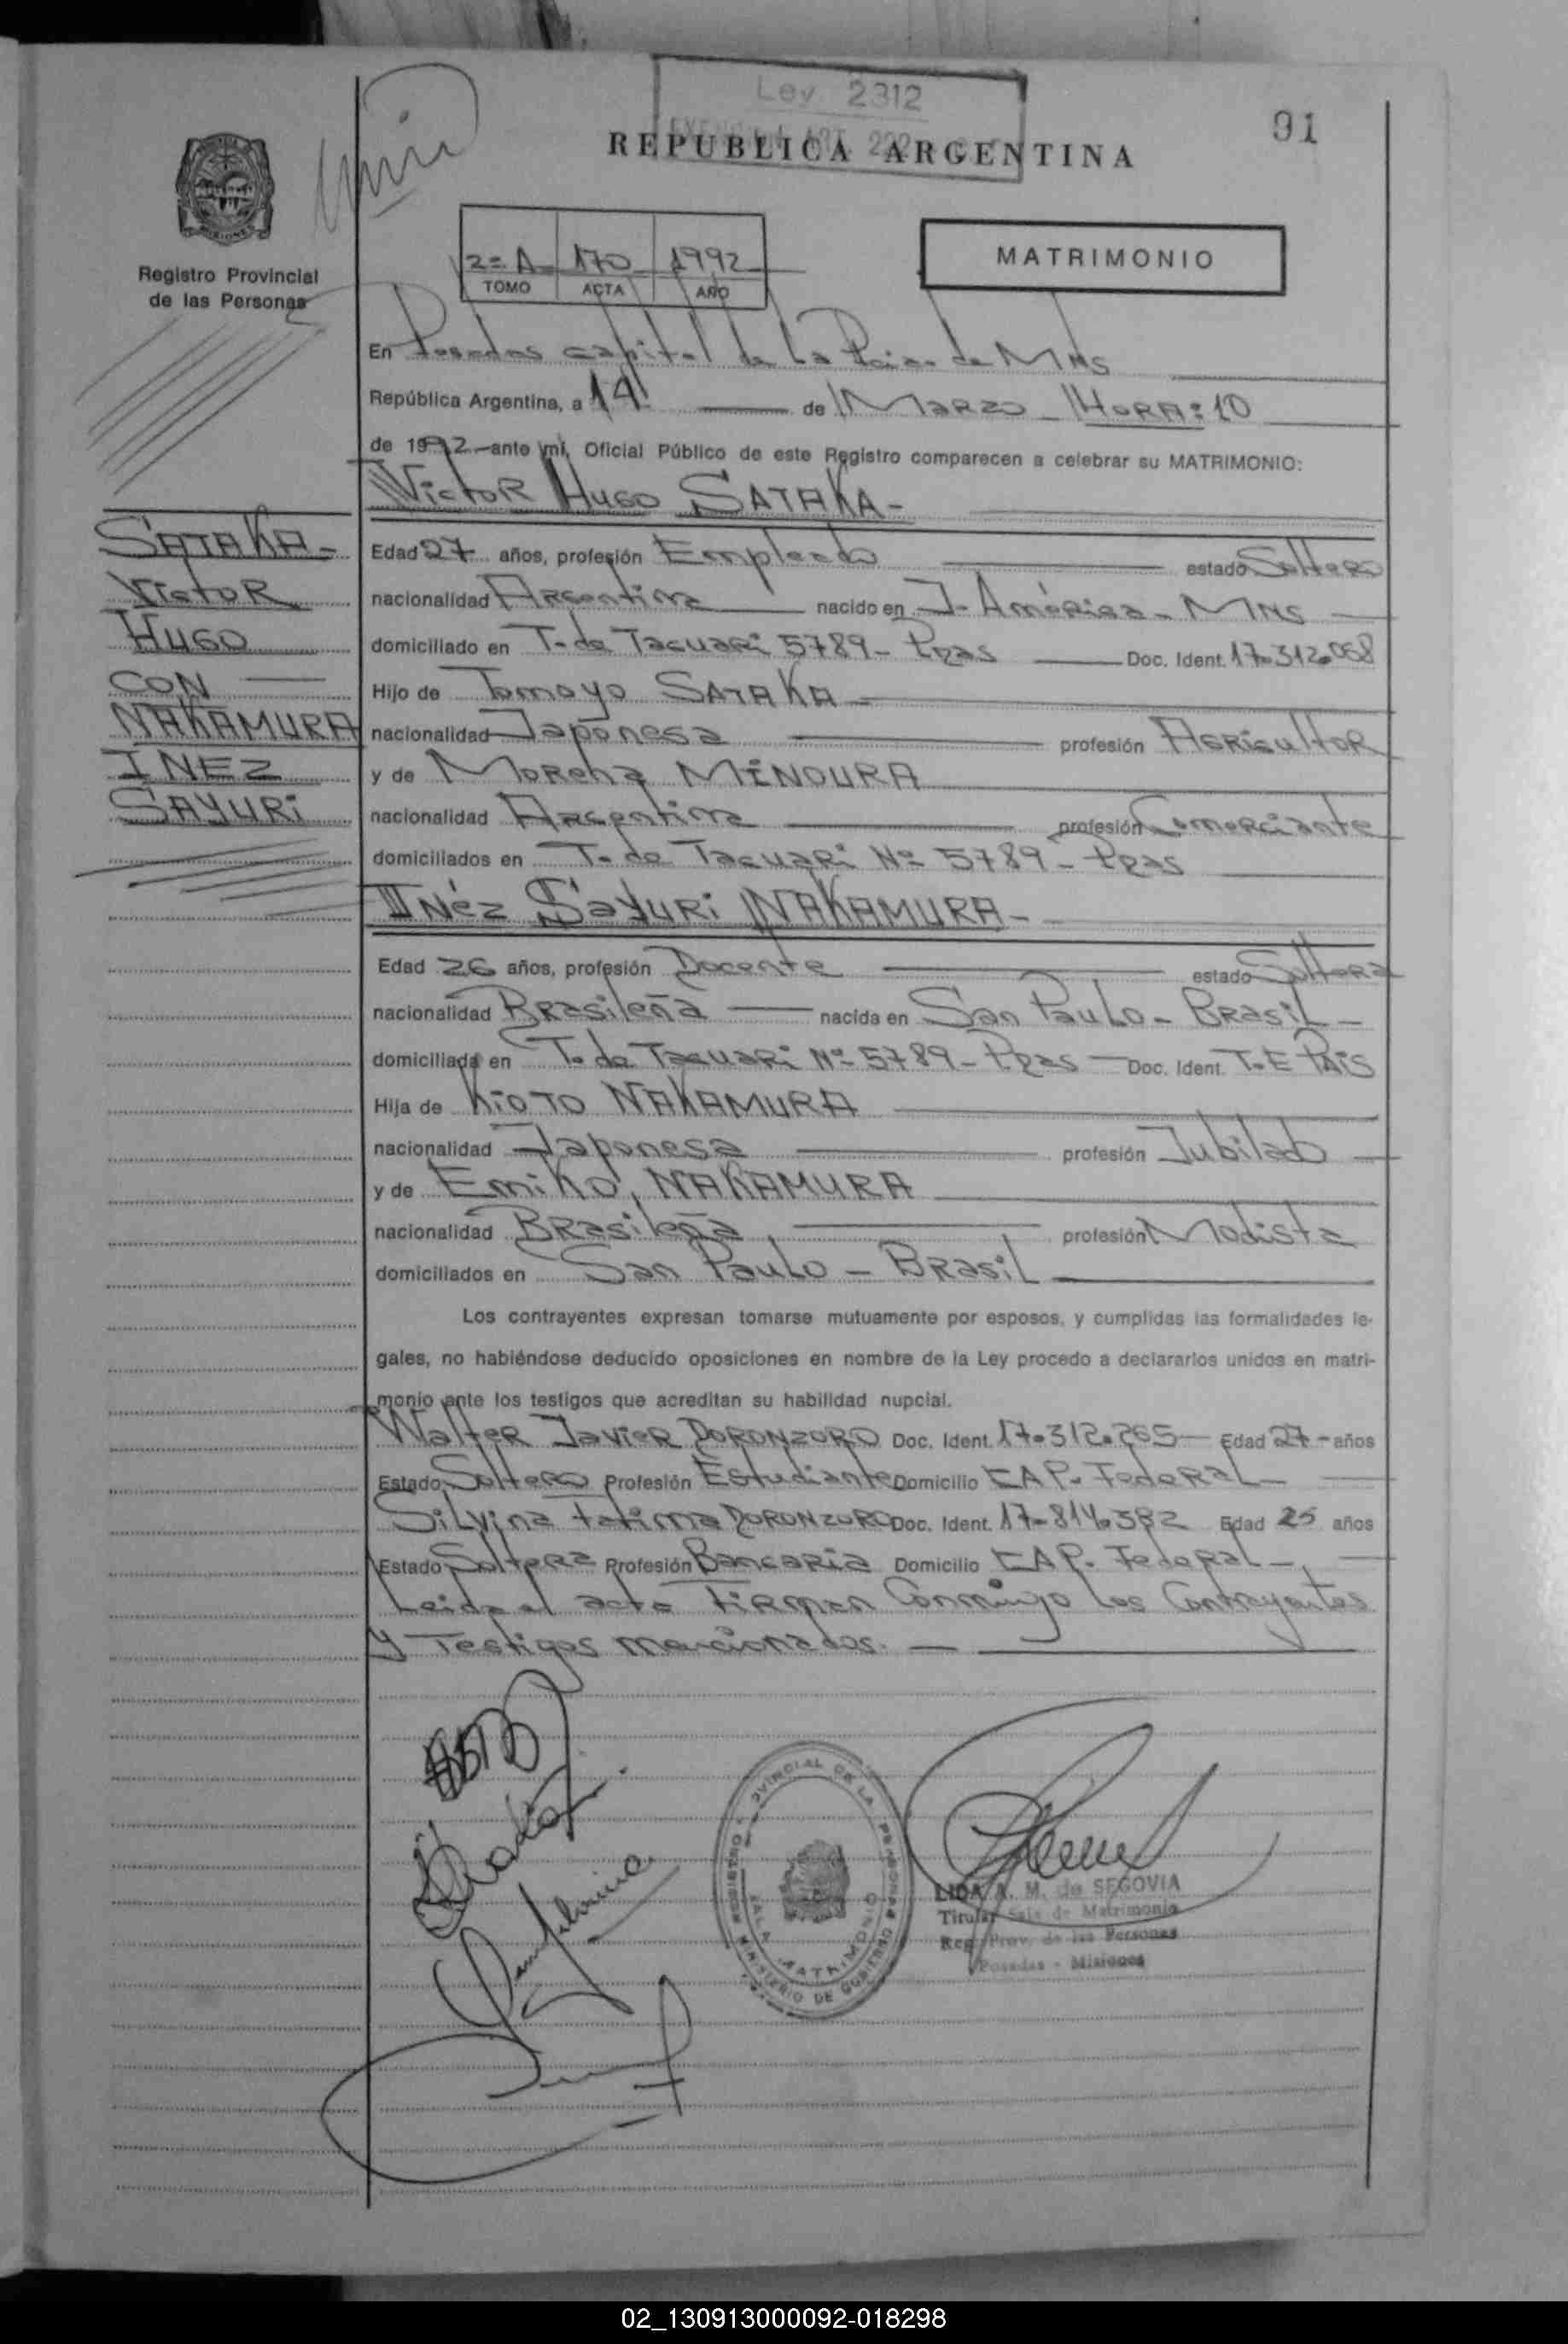 Ley 2312
91
REPUBLICA ARGENTINA
MISIONES
Registro Provincial
de las Personas
2= A 170 1992
TOMO ACTA AÑO
MATRIMONIO
En Posadas capital de La Pcia. de Mnes
República Argentina, a 14 de Marzo - Hora: 10
de 1992 - ante mi, Oficial Público de este Registro comparecen a celebrar su MATRIMONIO:
Victor Hugo SATAKA -
SATAKA -
Victor
HUGO
CON
NAKAMURA
INEZ
SAYURi
Edad 27 años, profesión Empleado estado Soltero
nacionalidad Argentina nacido en J. América - Mnes
domiciliado en T. de Tacuari 5789 - Pdas Doc. Ident. 17.312.068
Hijo de Tomoyo SATAKA
nacionalidad Japonesa profesión Agricultor
y de Morena MINOURA
nacionalidad Argentina profesión Comerciante
domiciliados en T. de Tacuari Nº 5789 - Pdas
INéz Sayuri NAKAMURA -
Edad 26 años, profesión Docente estado Soltera
nacionalidad Brasileña nacida en San Paulo - Brasil -
domiciliada en T. de Tacuari Nº 5789 - Pdas Doc. Ident. T.E PAiS
Hija de Kioto NAKAMURA
nacionalidad Japonesa profesión Jubilado
y de Emiko, NAKAMURA
nacionalidad Brasileña profesión Modista
domiciliados en San Paulo - Brasil
Los contrayentes expresan tomarse mutuamente por esposos, y cumplidas las formalidades le-
gales, no habiéndose deducido oposiciones en nombre de la Ley procedo a declararlos unidos en matri-
monio ante los testigos que acreditan su habilidad nupcial.
Walter Javier DORONZORO Doc. Ident. 17.312.265 Edad 27 - años
Estado Soltero Profesión Estudiante Domicilio CAP. Federal -
Silvina Fatima DORONZORO Doc. Ident. 17.814.382 Edad 25 años
Estado Soltera Profesión Bancaria Domicilio CAP. Federal -
Leida el acta Firman Conmigo los Contrayentes
y Testigos mencionados.
REGISTRO PROVINCIAL DE LAS PERSONAS
SALA MATRIMONIO
MINISTERIO DE GOBIERNO
LIDA A. M. de SEGOVIA
Titular Sala de Matrimonio
Reg. Prov. de las Personas
Posadas - Misiones
02_130913000092-018298